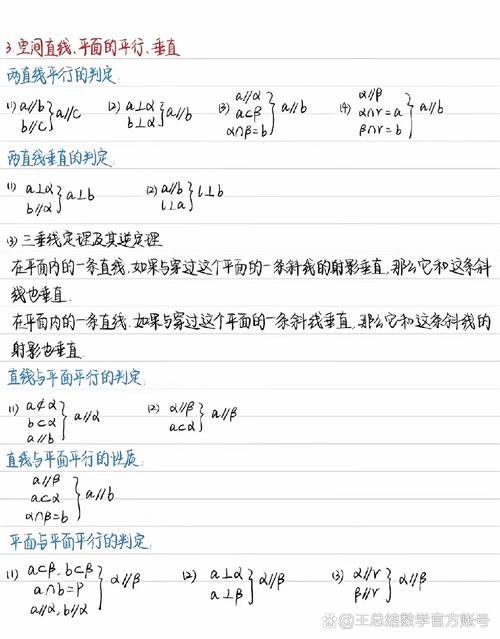 3 空间直线、平面的平行、垂直
两直线平行的判定:
(1) a∥b b∥c } a∥c (2) a⊥α b⊥α } a∥b (3) a∥α a⊂β α∩β=b } a∥b (4) α∥β α∩γ=a β∩γ=b } a∥b
两直线垂直的判定:
(1) a⊥α b∥α } a⊥b (2) a∥b l⊥a } l⊥b
(3) 三垂线定理及其逆定理
在平面内的一条直线,如果与穿过这个平面的一条斜线的射影垂直,那么它和这条斜
线也垂直.
在平面内的一条直线.如果与穿过这个平面的一条斜线垂直,那么它和这条斜线的
射影也垂直.
直线与平面平行的判定:
(1) a⊄α b⊂α a∥b } a∥α (2) α∥β a⊂α } a∥β
直线与平面平行的性质:
a∥β a⊂α α∩β=b } a∥b
平面与平面平行的判定:
(1) a⊂β,b⊂β a∩b=P a∥α,b∥α } α∥β (2) a⊥α a⊥β } α∥β (3) α∥γ β∥γ } α∥β
@王总结数学官方账号